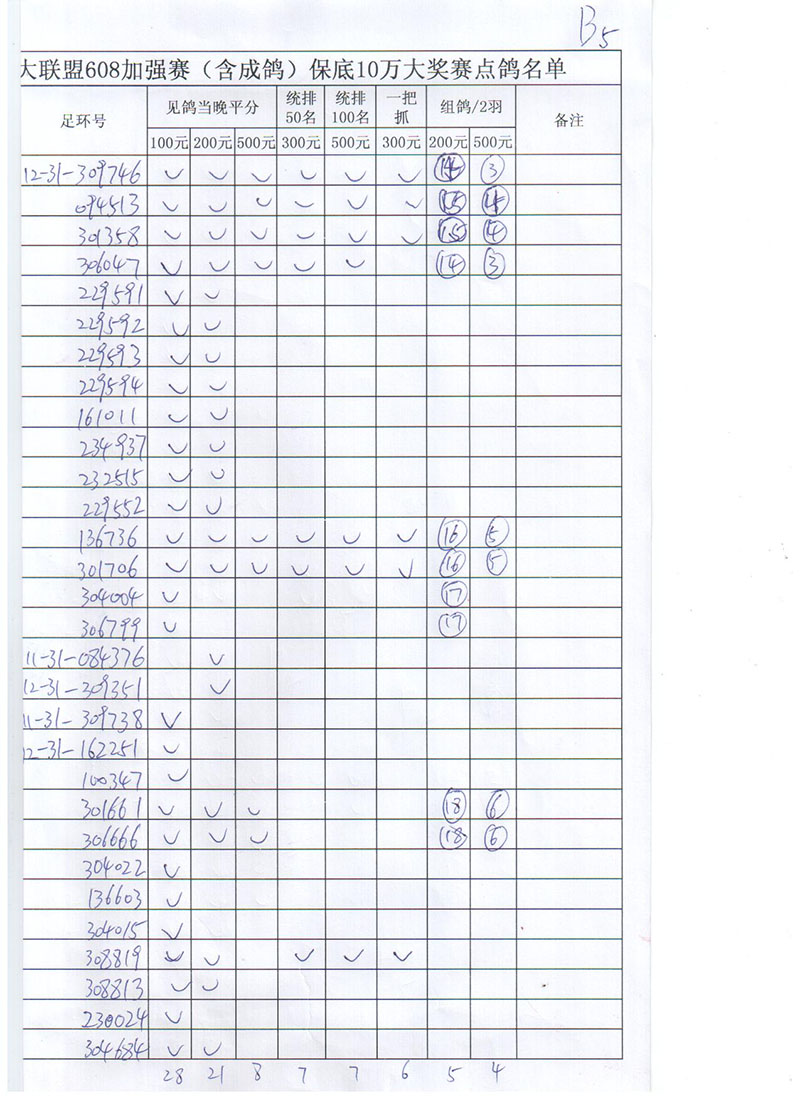 B5
大联盟608加强赛（含成鸽）保底10万大奖赛点鸽名单
足环号 见鸽当晚平分 统排50名 统排100名 一把抓 组鸽/2羽 备注
100元 200元 500元 300元 500元 300元 200元 500元
12-31-309746 ✓ ✓ ✓ ✓ ✓ ✓ ⑭ ③
094513 ✓ ✓ ✓ ✓ ✓ ✓ ⑮ ④
301358 ✓ ✓ ✓ ✓ ✓ ✓ ⑮ ④
306047 ✓ ✓ ✓ ✓ ✓ ⑭ ③
229591 ✓ ✓
229592 ✓ ✓
229593 ✓ ✓
229594 ✓ ✓
161011 ✓ ✓
234937 ✓ ✓
232515 ✓ ✓
229552 ✓ ✓
136736 ✓ ✓ ✓ ✓ ✓ ✓ ⑯ ⑤
301706 ✓ ✓ ✓ ✓ ✓ ✓ ⑯ ⑤
304004 ✓ ⑰
306799 ✓ ⑰
11-31-084376 ✓
12-31-309351 ✓
11-31-309738 ✓
12-31-162251 ✓
100347 ✓
301661 ✓ ✓ ✓ ⑱ ⑥
306666 ✓ ✓ ✓ ⑱ ⑥
304022 ✓
136603 ✓
304015 ✓
308819 ✓ ✓ ✓ ✓ ✓
308813 ✓ ✓
230024 ✓
304684 ✓ ✓
28 21 8 7 7 6 5 4